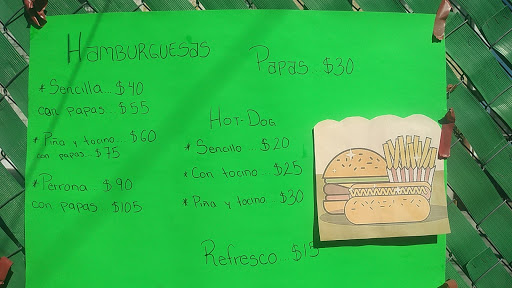 Hamburguesas
* Sencilla...$40
con papas...$55
* Piña y tocino...$60
con papas...$75
* Perrona...$90
con papas...$105
Papas...$30
Hot-Dog
* Sencillo...$20
* Con tocino...$25
* Piña y tocino...$30
Refresco...$15